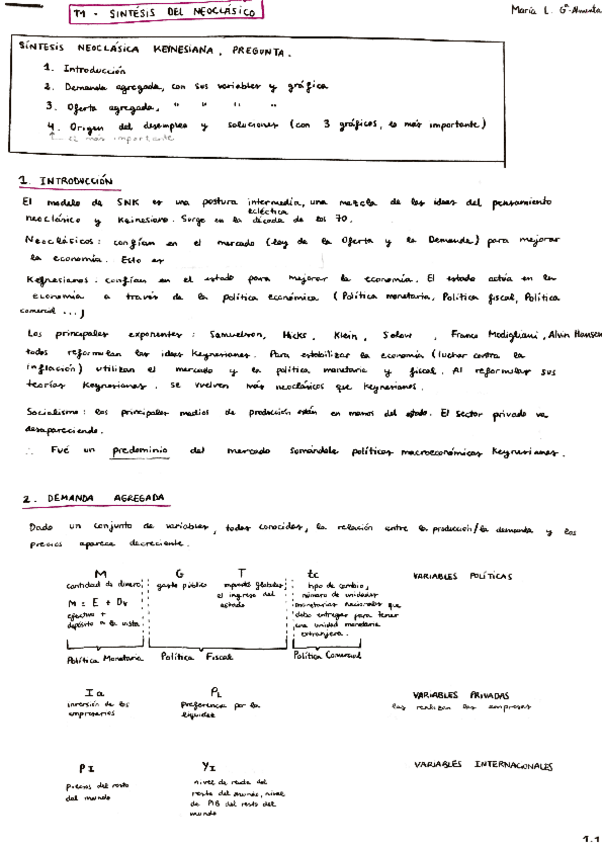 T1 - SINTÉSIS DEL NEOCLÁSICO
María L. Gª-Amenta
SÍNTESIS NEOCLÁSICA KEYNESIANA, PREGUNTA.
1. Introducción
2. Demanda agregada, con sus variables y gráfica
3. Oferta agregada, " " " "
4. Origen del desempleo y soluciones (con 3 gráficos, es más importante)
es más importante
1. INTRODUCCIÓN
El modelo de SNK es una postura intermedia, una mezcla de las ideas del pensamiento
ecléctica
neoclásico y Keinesiano. Surge en la década de los 70.
Neoclásicos: confían en el mercado (ley de la Oferta y la Demanda) para mejorar
la economía. Esto es
Keynesianos: confían en el estado para mejorar la economía. El estado actúa en la
economía a través de la política económica (Política monetaria, Política fiscal, Política
comercial ...)
Los principales exponentes: Samuelson, Hicks, Klein, Solow, Franco Modigliani, Alvin Hansen
todos reformulan las ideas Keynesianas. Para estabilizar la economía (luchar contra la
inflación) utilizan el mercado y la política monetaria y fiscal. Al reformular sus
teorías Keynesianas, se vuelven más neoclásicos que Keynesianos.
Socialismo: los principales medios de producción están en manos del estado. El sector privado va
desapareciendo.
∴ Fué un predominio del mercado sumándole políticas macroeconómicas Keynesianas.
2. DEMANDA AGREGADA
Dado un conjunto de variables, todas conocidas, la relación entre la producción/la demanda y los
precios aparece decreciente.
M G T tc VARIABLES POLÍTICAS
cantidad de dinero; gasto público impuestos globales; tipo de cambio,
el ingreso del número de unidades
M = E + Dv estado monetarias nacionales que
efectivo + debo entregar para tener
depósito a la vista una unidad monetaria
extranjera.
Política Monetaria Política Fiscal Política Comercial
Ia PL VARIABLES PRIVADAS
inversión de los preferencia por la las realizan las empresas
empresarios liquidez
PI YI VARIABLES INTERNACIONALES
precios del resto nivel de renta del
del mundo resto del mundo, nivel
de PIB del resto del
mundo
1.1